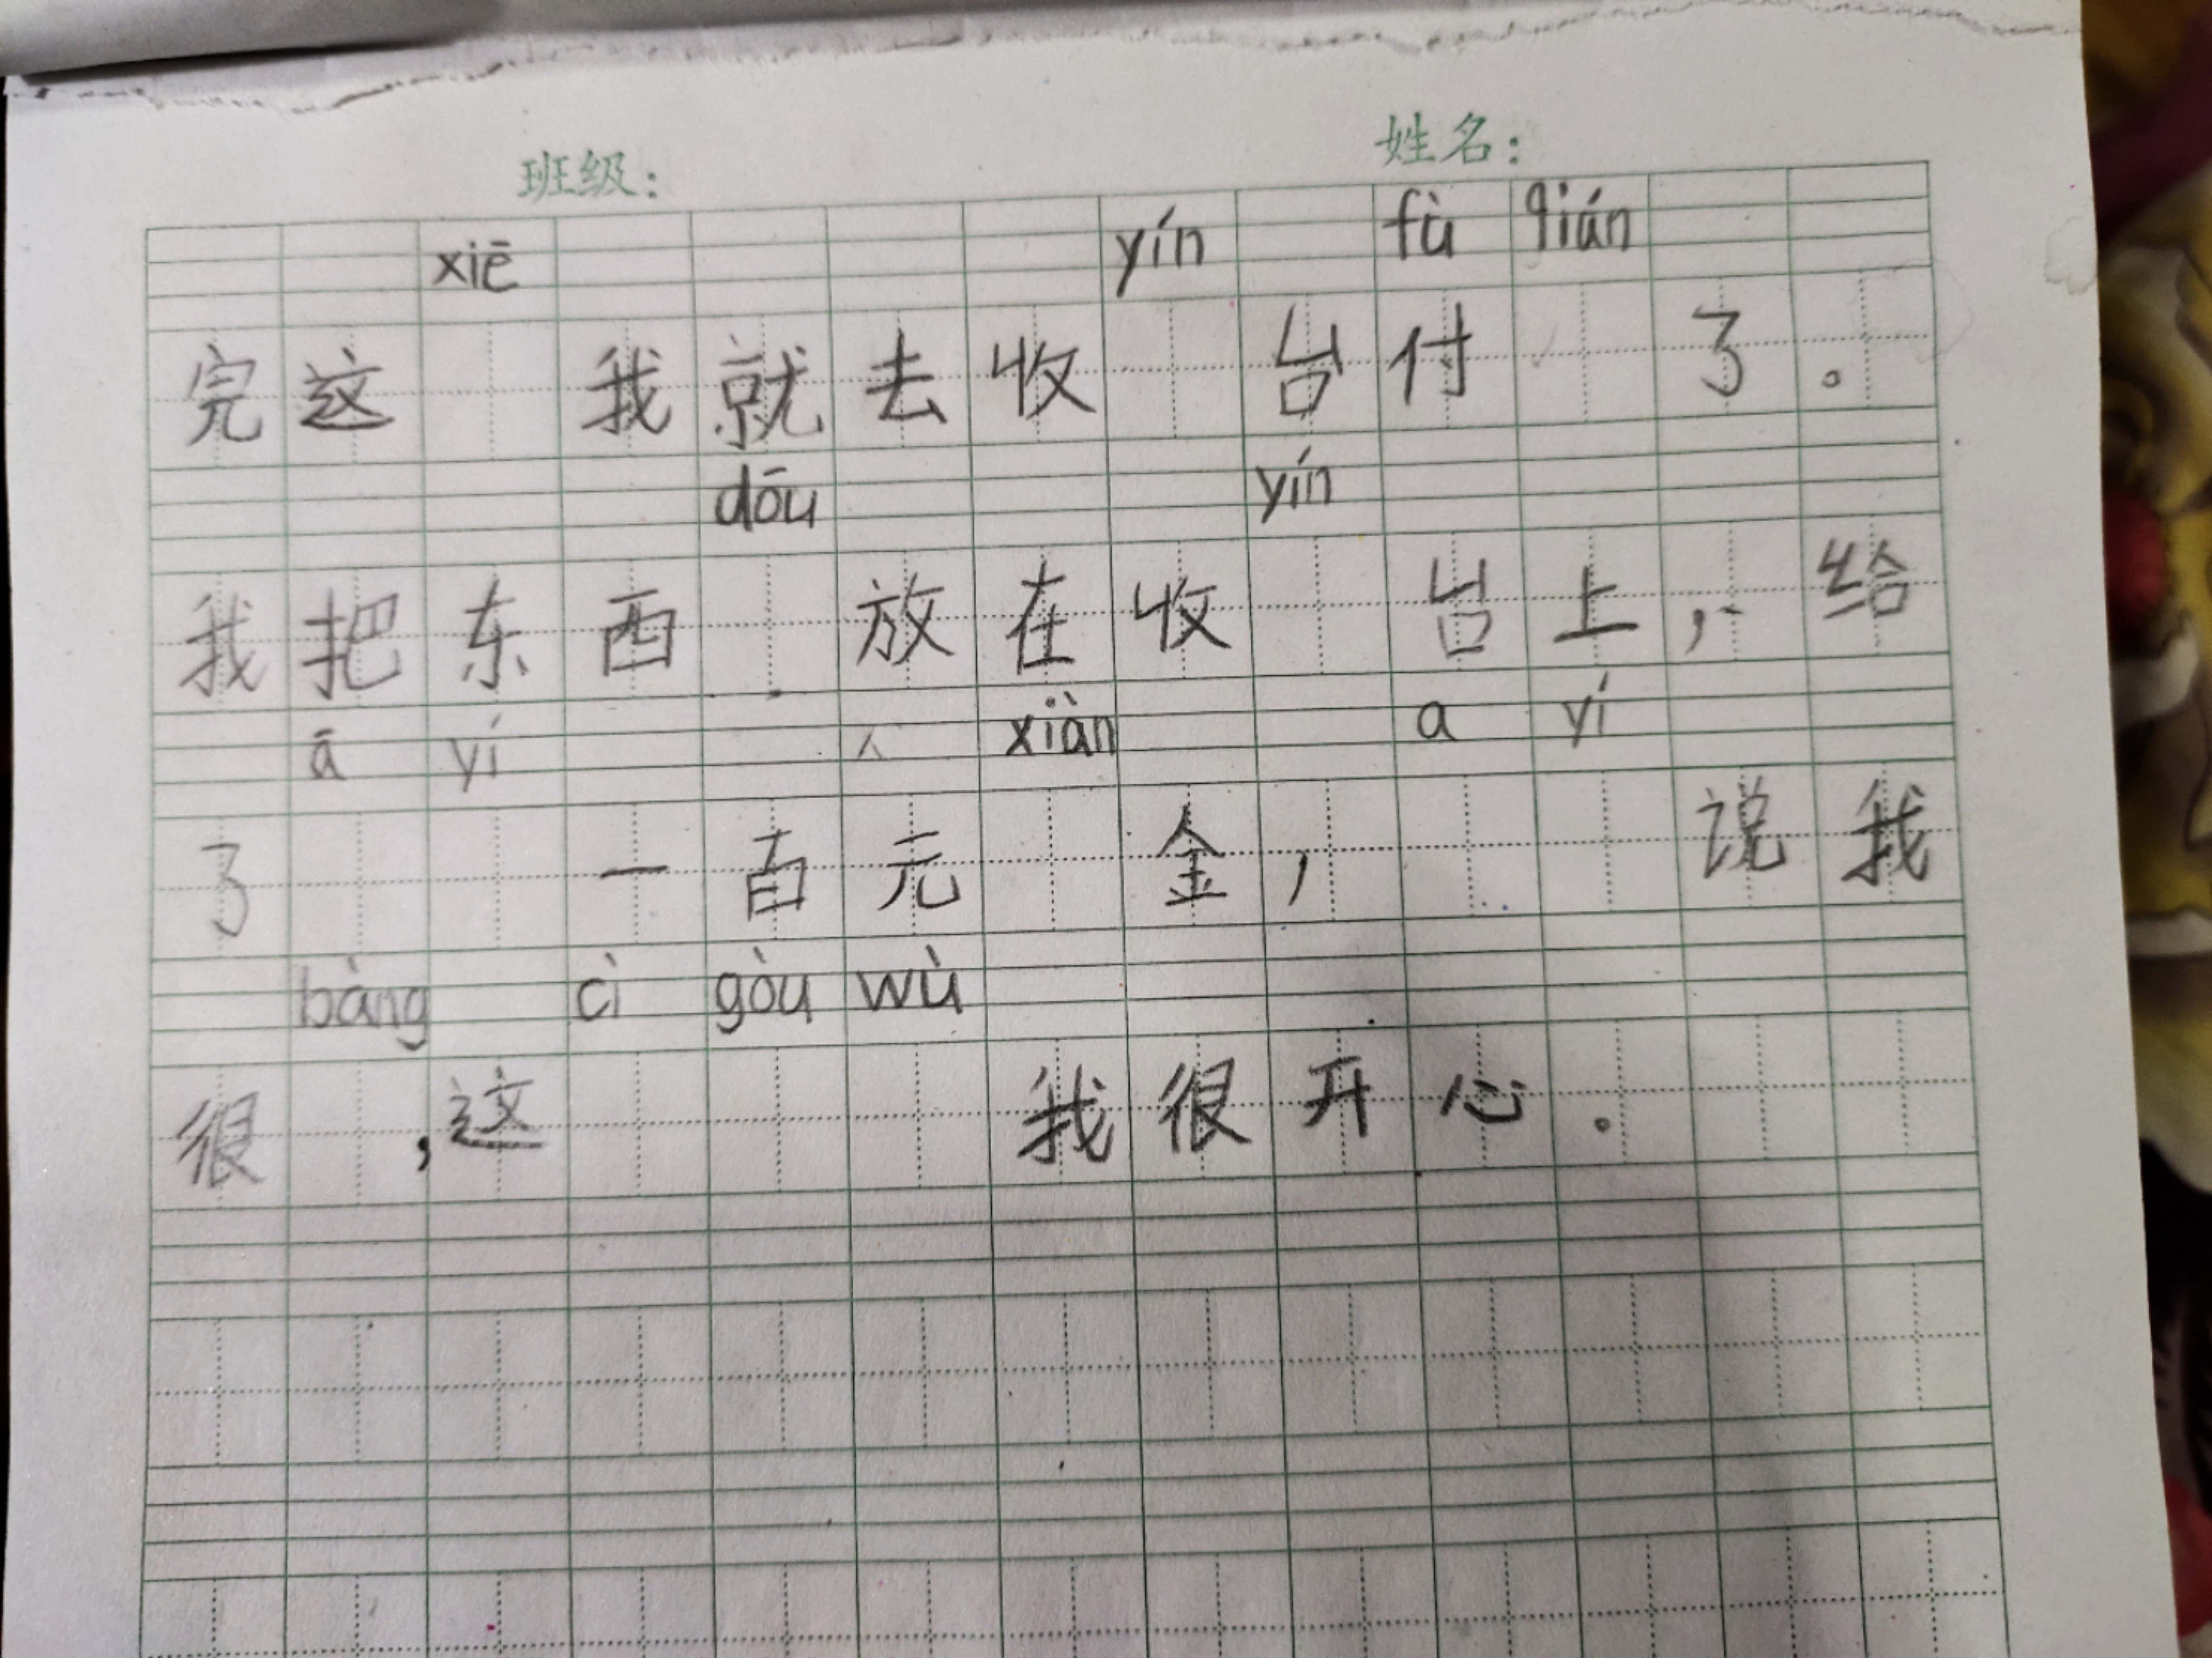 班级： 姓名：
xiē yín fù qián
完这 我就去收 台付 了。
dōu yín
我把东西 放在收 台上，给
ā yí xiàn a yí
了 一百元 金， 说我
bàng cì gòu wù
很 ，这 我很开心。